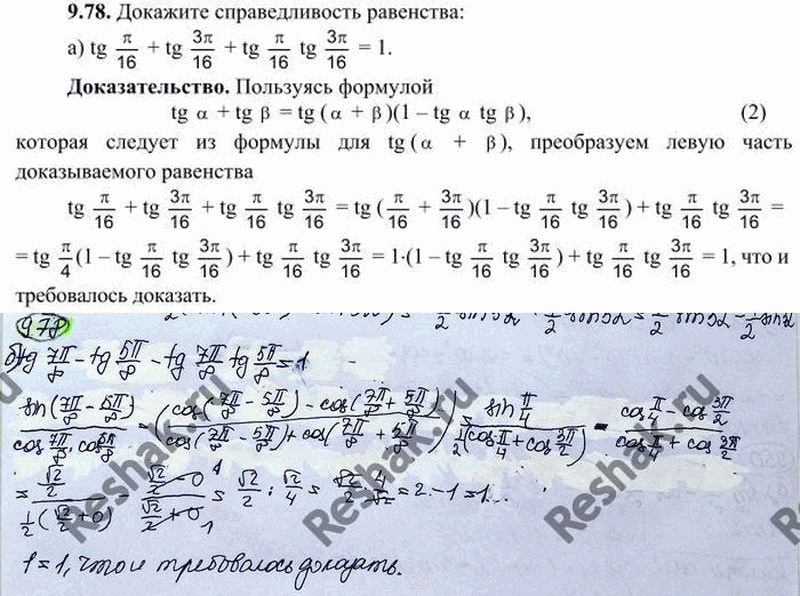 9.78. Докажите справедливость равенства:
а) tg π/16 + tg 3π/16 + tg π/16 tg 3π/16 = 1.
Доказательство. Пользуясь формулой
tg α + tg β = tg (α + β)(1 – tg α tg β), (2)
которая следует из формулы для tg (α + β), преобразуем левую часть
доказываемого равенства
tg π/16 + tg 3π/16 + tg π/16 tg 3π/16 = tg (π/16 + 3π/16)(1 – tg π/16 tg 3π/16) + tg π/16 tg 3π/16 =
= tg π/4 (1 – tg π/16 tg 3π/16) + tg π/16 tg 3π/16 = 1·(1 – tg π/16 tg 3π/16) + tg π/16 tg 3π/16 = 1, что и
требовалось доказать.
978
б) tg 7π/8 - tg 5π/8 - tg 7π/8 tg 5π/8 = 1
sin(7π/8 - 5π/8)/cos 7π/8 · cos 5π/8 - (cos(7π/8 - 5π/8) - cos(7π/8 + 5π/8))/(cos(7π/8 - 5π/8) + cos(7π/8 + 5π/8)) = sin π/4 / 1/2(cos π/4 + cos 3π/2) - (cos π/4 - cos 3π/2)/(cos π/4 + cos 3π/2)
= √2/2 / 1/2(√2/2 + 0) - (√2/2 - 0)/(√2/2 + 0) = √2/2 : √2/4 = √2/2 · 4/√2 = 2 - 1 = 1...
1 = 1, что и требовалось доказать.
Reshak.ru
Reshak.ru